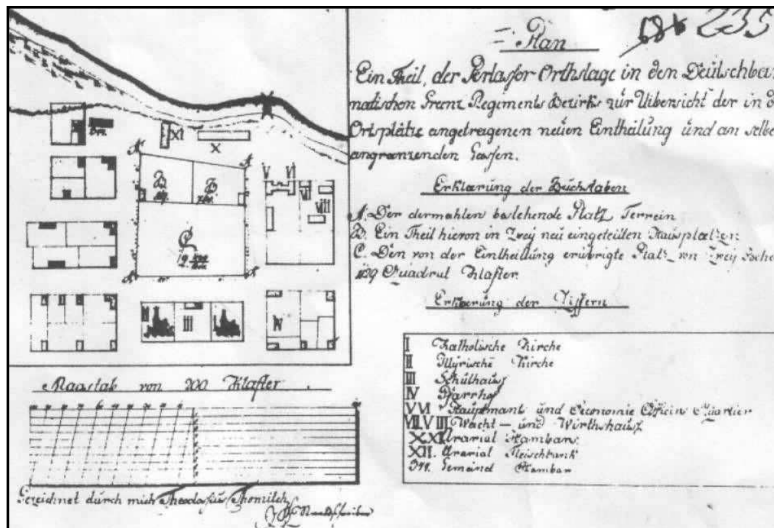 235
Plan
Ein Theil, der Perlasfor Orthslage in den Deütschban-
matischen Grenz Regements Bezirk zur Uibersicht der in d
Ortsplätze angetragenen neuen Eintheilung und an selbe
angranzenden Gassen.
Erklärung der Buchstaben
A. Der dermahlen bestehende Platz Terrein
B. Ein Theil hieron in Zwey neu eingeteilten Hausplatzen
C. Den von der Eintheilung erübrigte Platz von Zwey Joche
Quadrat Klafter
Erklärung der Ziffern
I Katholische Kirche
II Illyrische Kirche
III Schulhaus
IV Pfarrhof
V VI Hauptmant und Oeconomie Officir Quartier
VII. VIII Wacht- und Wirthshaus
X. XI. Ararial Hambars
XII. Ararial Fleischbank
Gemeind Hambar
XI
X
A
A
B
B
C
A
A
V VI
VII
VIII
I
II
III
II
III
IV
Maastab von 200 Klafter
Gezeichnet durch mich Theodosius Thomitch